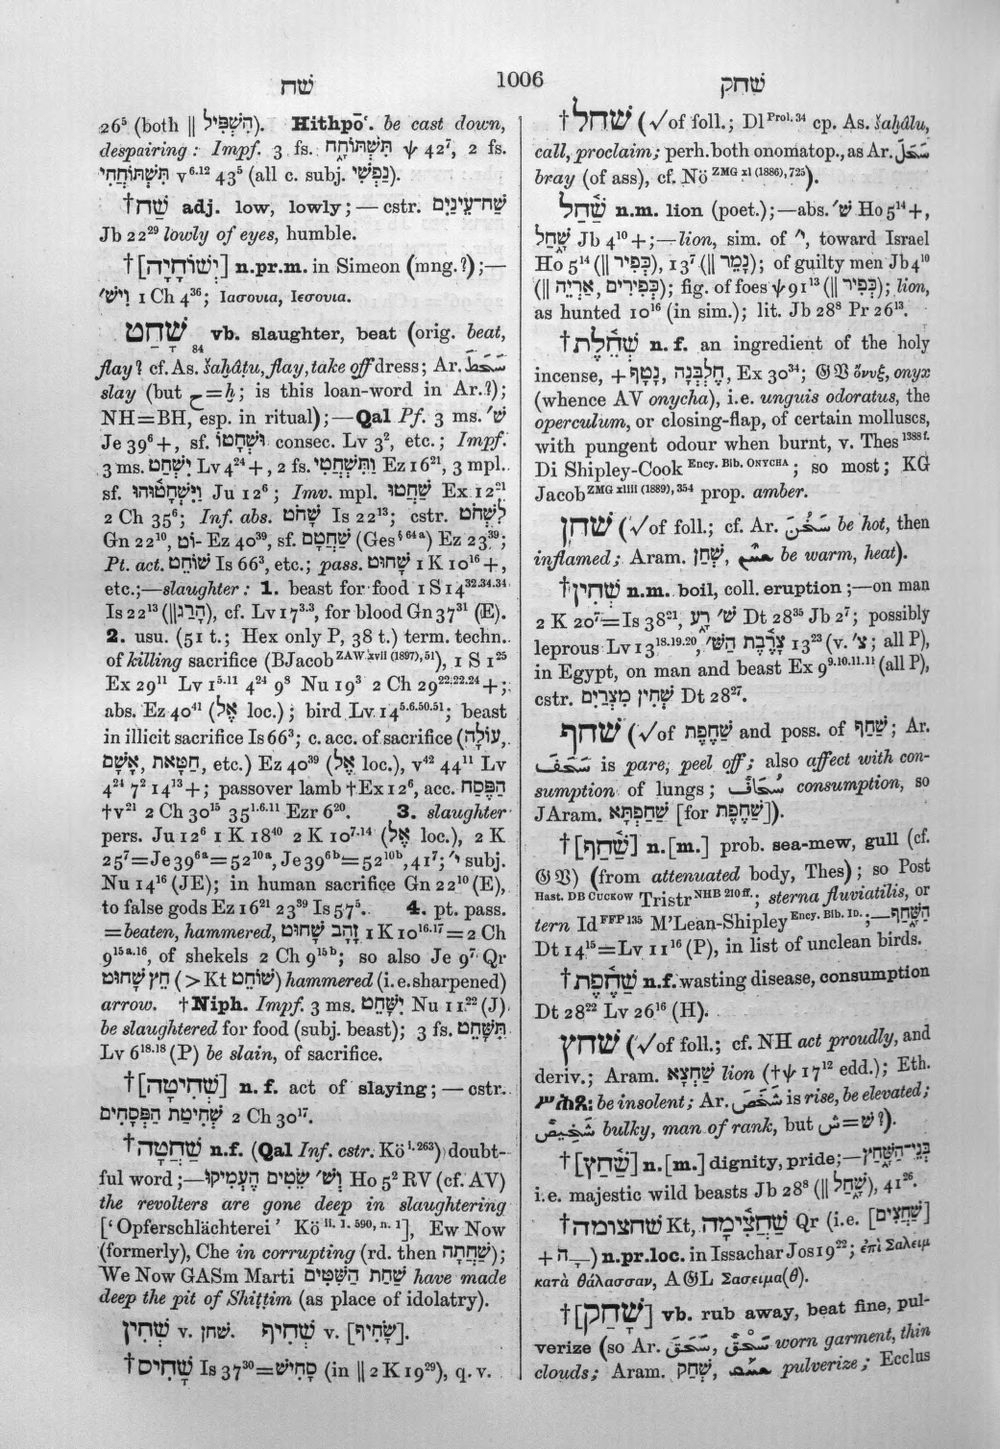 שׁח
1006
שׁחק
26⁵ (both ‖ הִשְׁפִּיל). Hithpōʿ. be cast down,
despairing: Impf. 3 fs. תִּשְׁתּוֹחָ֑ח ψ 42⁷, 2 fs.
תִּשְׁתּוֹחֲחִי v⁶·¹² 43⁵ (all c. subj. נַפְשִׁי).
†שַׁח adj. low, lowly;—cstr. שַׁח־עֵינַיִם
Jb 22²⁹ lowly of eyes, humble.
†[יְשׁוֹחָיָה] n.pr.m. in Simeon (mng.?);—
וִישׁ׳ 1 Ch 4³⁶; Ιασουια, Ιεσουια.
שׁחט₈₄ vb. slaughter, beat (orig. beat,
flay? cf. As. šaḫâṭu, flay, take off dress; Ar. شحط
slay (but ح=ḫ; is this loan-word in Ar.?);
NH=BH, esp. in ritual);—Qal Pf. 3 ms. שׁ׳
Je 39⁶+, sf. וּשְׁחָטוֹ consec. Lv 3², etc.; Impf.
3 ms. יִשְׁחַט Lv 4²⁴+, 2 fs. וַתִּשְׁחֲטִי Ez 16²¹, 3 mpl.
sf. וַיִּשְׁחָטוּהוּ Ju 12⁶; Imv. mpl. שַׁחֲטוּ Ex 12²¹
2 Ch 35⁶; Inf. abs. שָׁחֹט Is 22¹³; cstr. לִשְׁחֹט
Gn 22¹⁰, וֹט- Ez 40³⁹, sf. שַׁחֲטָם (Ges§ 64 a) Ez 23³⁹;
Pt. act. שׁוֹחֵט Is 66³, etc.; pass. שָׁחוּט 1 K 10¹⁶+,
etc.;—slaughter: 1. beast for food 1 S 14³²·³⁴·³⁴
Is 22¹³ (‖הָרַג), cf. Lv 17³·³, for blood Gn 37³¹ (E).
2. usu. (51 t.; Hex only P, 38 t.) term. techn.
of killing sacrifice (BJacob ZAW xvii (1897), 51), 1 S 1²⁵
Ex 29¹¹ Lv 1⁵·¹¹ 4²⁴ 9⁸ Nu 19³ 2 Ch 29²²·²²·²⁴+;
abs. Ez 40⁴¹ (אֶל loc.); bird Lv 14⁵·⁶·⁵⁰·⁵¹; beast
in illicit sacrifice Is 66³; c. acc. of sacrifice (עוֹלָה,
חַטָּאת, אָשָׁם, etc.) Ez 40³⁹ (אֶל loc.), v⁴² 44¹¹ Lv
4²⁴ 7² 14¹³+; passover lamb †Ex 12⁶, acc. הַפֶּסַח
†v²¹ 2 Ch 30¹⁵ 35¹·⁶·¹¹ Ezr 6²⁰. 3. slaughter
pers. Ju 12⁶ 1 K 18⁴⁰ 2 K 10⁷·¹⁴ (אֶל loc.), 2 K
25⁷=Je 39⁶ᵃ=52¹⁰ᵃ, Je 39⁶ᵇ=52¹⁰ᵇ, 41⁷; י׳ subj.
Nu 14¹⁶ (JE); in human sacrifice Gn 22¹⁰ (E),
to false gods Ez 16²¹ 23³⁹ Is 57⁵. 4. pt. pass.
=beaten, hammered, זָהָב שָׁחוּט 1 K 10¹⁶·¹⁷=2 Ch
9¹⁵ᵃ·¹⁶, of shekels 2 Ch 9¹⁵ᵇ; so also Je 9⁷ Qr
חֵץ שָׁחוּט (>Kt שׁוֹחֵט) hammered (i.e. sharpened)
arrow. †Niph. Impf. 3 ms. יִשָּׁחֵט Nu 11²² (J)
be slaughtered for food (subj. beast); 3 fs. תִּשָּׁחֵט
Lv 6¹⁸·¹⁸ (P) be slain, of sacrifice.
†[שְׁחִיטָה] n. f. act of slaying;—cstr.
שְׁחִיטַת הַפְּסָחִים 2 Ch 30¹⁷.
†שַׁחֲטָה n.f. (Qal Inf. cstr. Kö i. 263) doubt-
ful word;—וְשׁ׳ שֵׂטִים הֶעְמִיקוּ Ho 5² RV (cf. AV)
the revolters are gone deep in slaughtering
[‘Opferschlächterei’ Kö ii. 1. 590, n. 1], Ew Now
(formerly), Che in corrupting (rd. then שַׁחֲתָה);
We Now GASm Marti שַׁחַת הַשִּׁטִּים have made
deep the pit of Shiṭṭim (as place of idolatry).
שְׁחִין v. שׁחן. שְׁחִיף v. [שָׂחִיף].
†שָׁחִיס Is 37³⁰=סָחִישׁ (in ‖ 2 K 19²⁹), q. v.
†שׁחל (√of foll.; Dl Prol. 34 cp. As. šaḫâlu,
call, proclaim; perh. both onomatop., as Ar. سَحَلَ
bray (of ass), cf. Nö ZMG xl (1886), 725).
שַׁ֫חַל n.m. lion (poet.);—abs. שׁ׳ Ho 5¹⁴+,
שָׁ֑חַל Jb 4¹⁰+;—lion, sim. of י׳, toward Israel
Ho 5¹⁴ (‖ כְּפִיר), 13⁷ (‖ נָמֵר); of guilty men Jb 4¹⁰
(‖ אַרְיֵה, כְּפִירִים); fig. of foes ψ 91¹³ (‖ כְּפִיר); lion,
as hunted 10¹⁶ (in sim.); lit. Jb 28⁸ Pr 26¹³.
†שְׁחֵ֫לֶת n. f. an ingredient of the holy
incense, + חֶלְבְּנָה, נָטָף, Ex 30³⁴; 𝔊 𝔙 ὄνυξ, onyx
(whence AV onycha), i.e. unguis odoratus, the
operculum, or closing-flap, of certain molluscs,
with pungent odour when burnt, v. Thes 1388 f.
Di Shipley-Cook Ency. Bib. ONYCHA; so most; KG
Jacob ZMG xliii (1889), 354 prop. amber.
שׁחן (√of foll.; cf. Ar. سَخُنَ be hot, then
inflamed; Aram. שְׁחֵן, ܫܚܢ be warm, heat).
†שְׁחִין n.m. boil, coll. eruption;—on man
2 K 20⁷=Is 38²¹, שׁ׳ רָ֑ע Dt 28³⁵ Jb 2⁷; possibly
leprous Lv 13¹⁸·¹⁹·²⁰, צָרֶ֫בֶת הַשּׁ׳ 13²³ (v. צ׳; all P),
in Egypt, on man and beast Ex 9⁹·¹⁰·¹¹·¹¹ (all P),
cstr. שְׁחִין מִצְרַיִם Dt 28²⁷.
שׁחף (√of שַׁחֶפֶת and poss. of שַׁחַף; Ar.
سَحَفَ is pare, peel off; also affect with con-
sumption of lungs; سُحَاف consumption, so
J Aram. שַׁחַפְתָּא [for שַׁחֶפֶת]).
†[שַׁ֫חַף] n.[m.] prob. sea-mew, gull (cf.
𝔊 𝔙) (from attenuated body, Thes); so Post
Hast. DB CUCKOW Tristr NHB 210 ff.; sterna fluviatilis, or
tern Id FFP 135 M’Lean-Shipley Ency. Bib. ID.;—הַשָּׁ֑חַף
Dt 14¹⁵=Lv 11¹⁶ (P), in list of unclean birds.
†שַׁחֶ֫פֶת n.f. wasting disease, consumption
Dt 28²² Lv 26¹⁶ (H).
שׁחץ (√of foll.; cf. NH act proudly, and
deriv.; Aram. שַׁחֲצָא lion (†ψ 17¹² edd.); Eth.
be insolent; Ar. شَخَصَ is rise, be elevated;
شَخِيص bulky, man of rank, but ش=שׁ?).
†[שַׁ֫חַץ] n.[m.] dignity, pride;—בְּנֵי־הַשָּׁ֑חַץ
i.e. majestic wild beasts Jb 28⁸ (‖ שָׁ֑חַל), 41²⁶.
†שחצומה Kt, שַׁחֲצִ֫ימָה Qr (i.e. [שַׁחֲצִים]
+ ־ָה) n.pr.loc. in Issachar Jos 19²²; ἐπὶ Σαλειμ
κατὰ θάλασσαν, A 𝔊L Σασειμα(θ).
†[שָׁחַק] vb. rub away, beat fine, pul-
verize (so Ar. سَحَقَ, سَحْقٌ worn garment, thin
clouds; Aram. שְׁחַק, ܫܚܩ pulverize; Ecclus